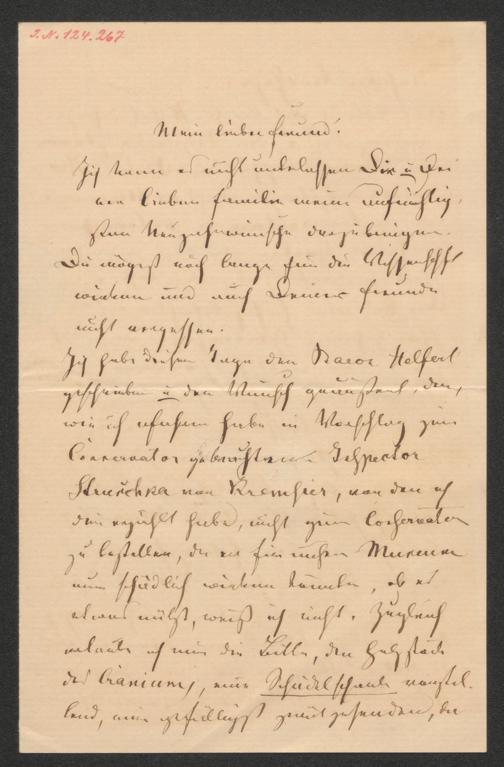 J.N. 124.267
Mein lieber Freund!
Ich kann es nicht unterlassen Dir u Dei
ner lieben Familie meine aufrichtig
sten Neujahrswünsche darzubringen.
Du mögest noch lange für die Wissenschft
wirken und auch Deiner Freunde
nicht vergessen.
Ich habe dieser Tage dem Baron Helfert
geschrieben u den Wunsch geäussert, den,
wie ich erfahren habe in Vorschlag zum
Conservator gebrachten Inspector
Struschka von Kremsier, von dem ich
Dir erzählt habe, nicht zum Conservator
zu bestellen, da er für unser Museum
nur schädlich wirken könnte, ob es
etwas nützt, weiß ich nicht. Zugleich
erlaube ich mir die Bitte, den Holzstock
des Craniums, eine Schädelschale vorstel.
lend, mir gefälligst zurückzusenden, da